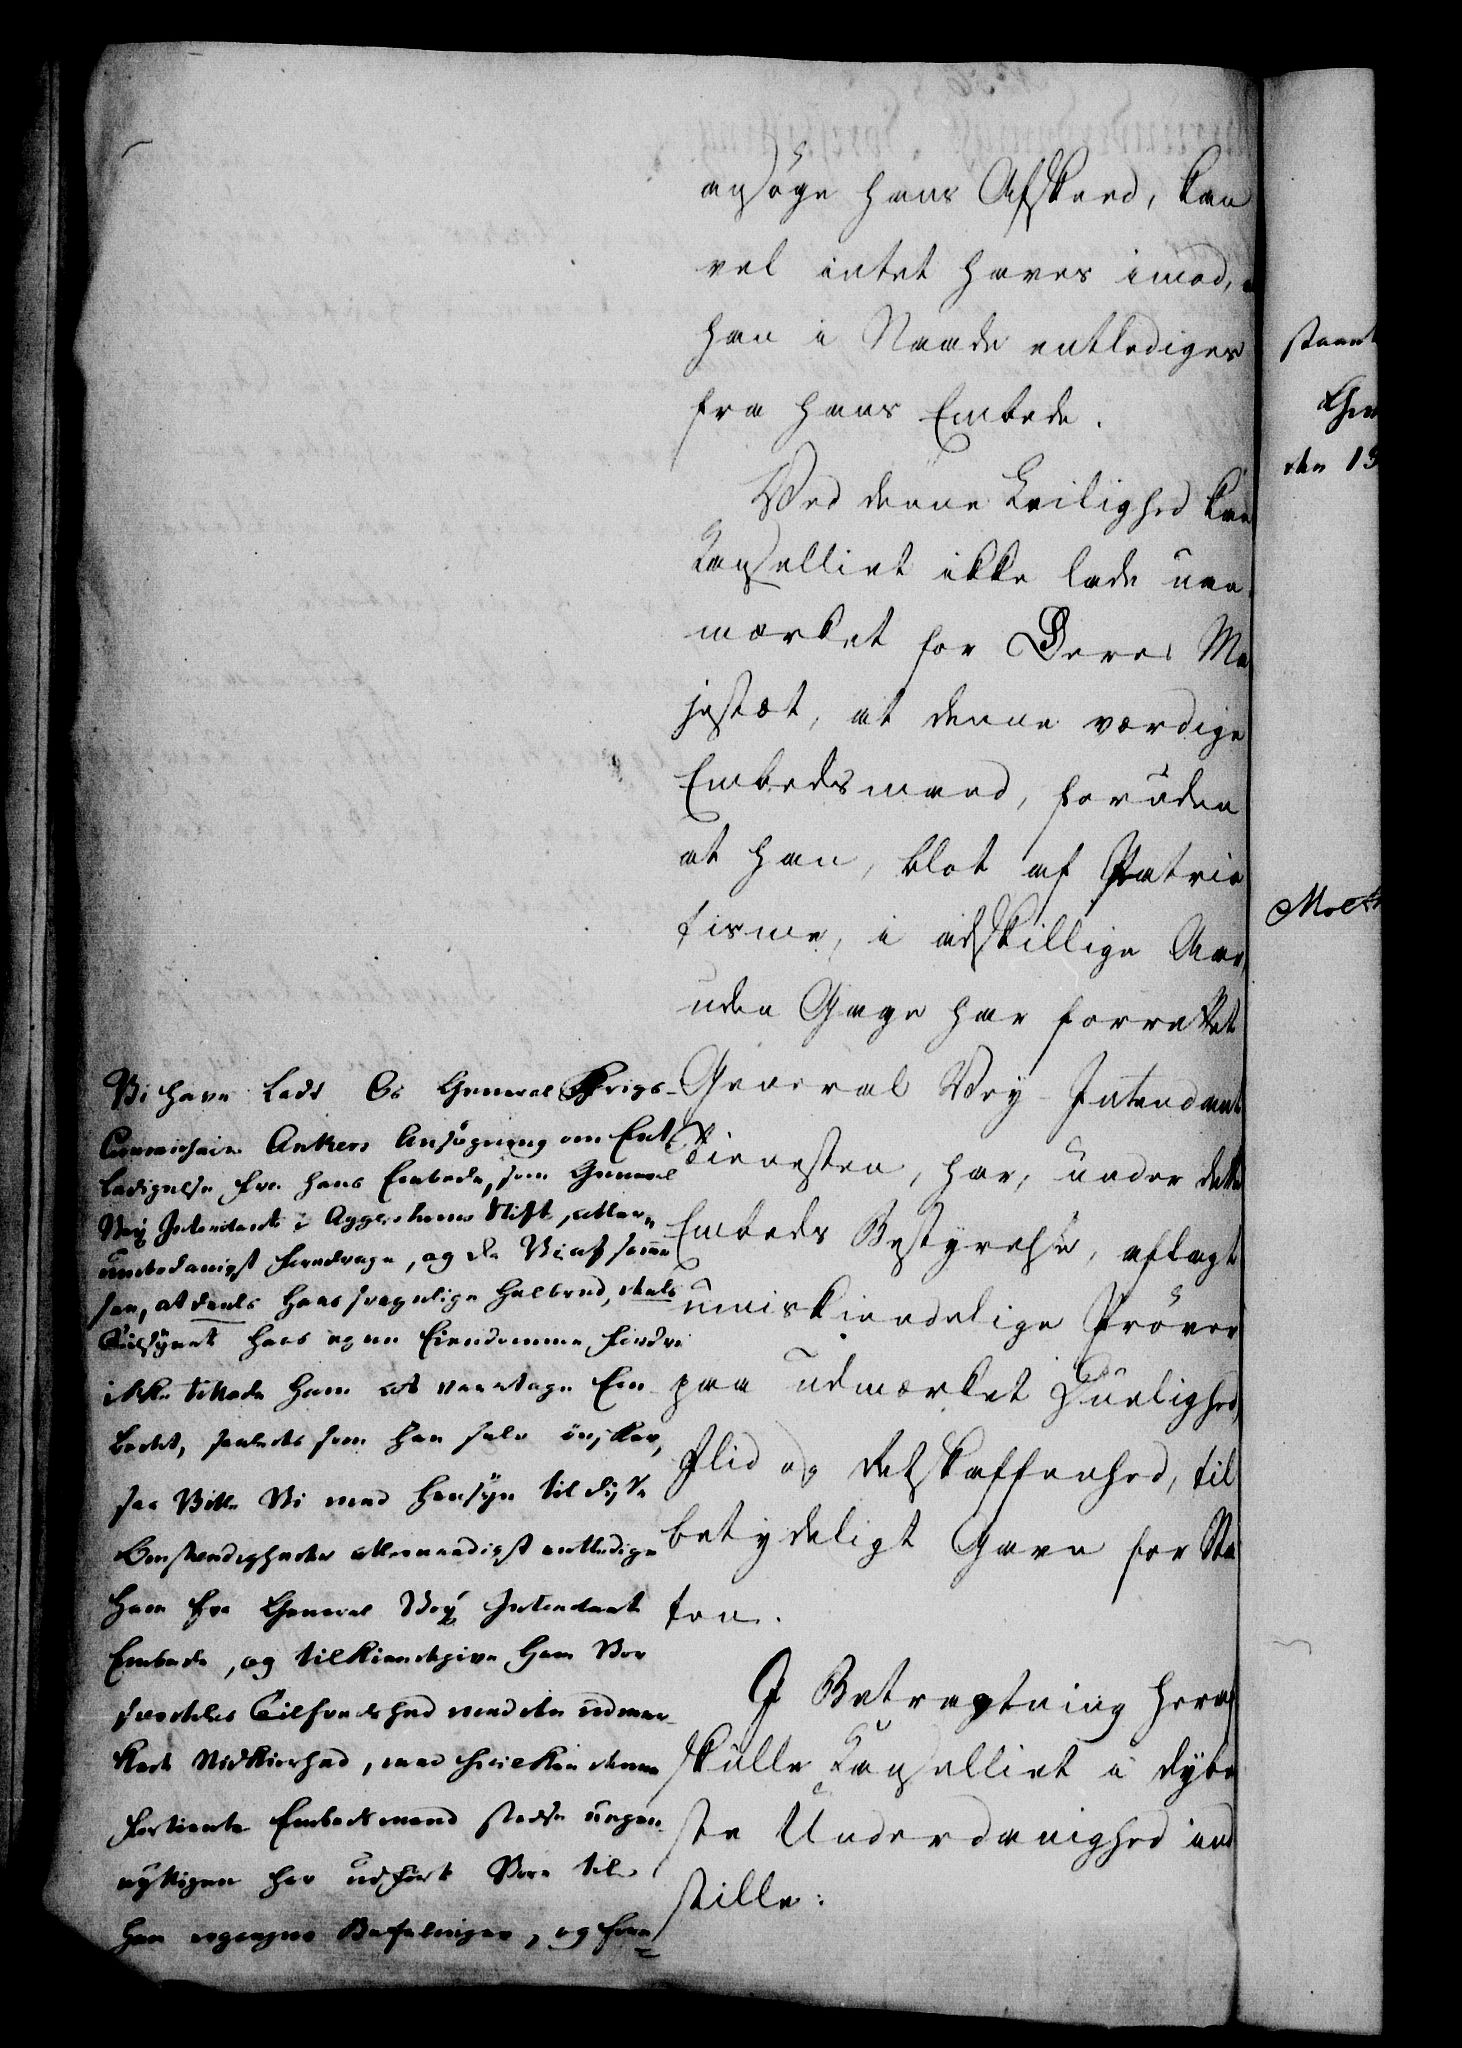 ansøge hans Afskeed, kan
vel intet haves imod,
han i Naade entlediges
fra hans Embede.
Ved denne Leilighed kan
Kanselliet ikke lade uan-
mærket for Deres Ma
jestæt, at denne værdige
Embedsmand, foruden
at han, blot af Patrio
tisme, i adskillige Aar,
uden Gage har forrettet
General Vey-Intendant
Tienesten, har, under dette
Embeds Bestyrelse, aflagt
umiskiendelige Prøver
paa udmærket Duelighed,
Flid og Retskaffenhed, til
betydeligt Gavn for Sta
ten.
I Betragtning heraf
skulle Kanselliet i dybe
ste Underdanighed ind
stille:
Vi have ladt Os General Krigs-
Commissair Ankers Ansøgning om Ent
ledigelse fra hans Embede, som General
Vey Intendant i Aggershuus Stift, aller-
underdanigst foredrage, og da Vi af samme
see, at deels hans svagelige Helbred, deels
Tilsynet hans egne Eiendomme fordre
ikke tillade ham at varetage Em
bedet, saaledes som han selv ønsker,
saa Ville Vi med Hensyn til disse
Omstændigheder allernaadigst entledige
ham fra General Vey Intendant
Embede, og tilkiendegive ham Vor
særdeles Tilfredshed med den udmær-
kede Nidkierhed, med hvilken denne
fortiente Embedsmand stedse uegen
nyttigen har udført Vore til
ham ergangne Befalinger, og fore=
den 19